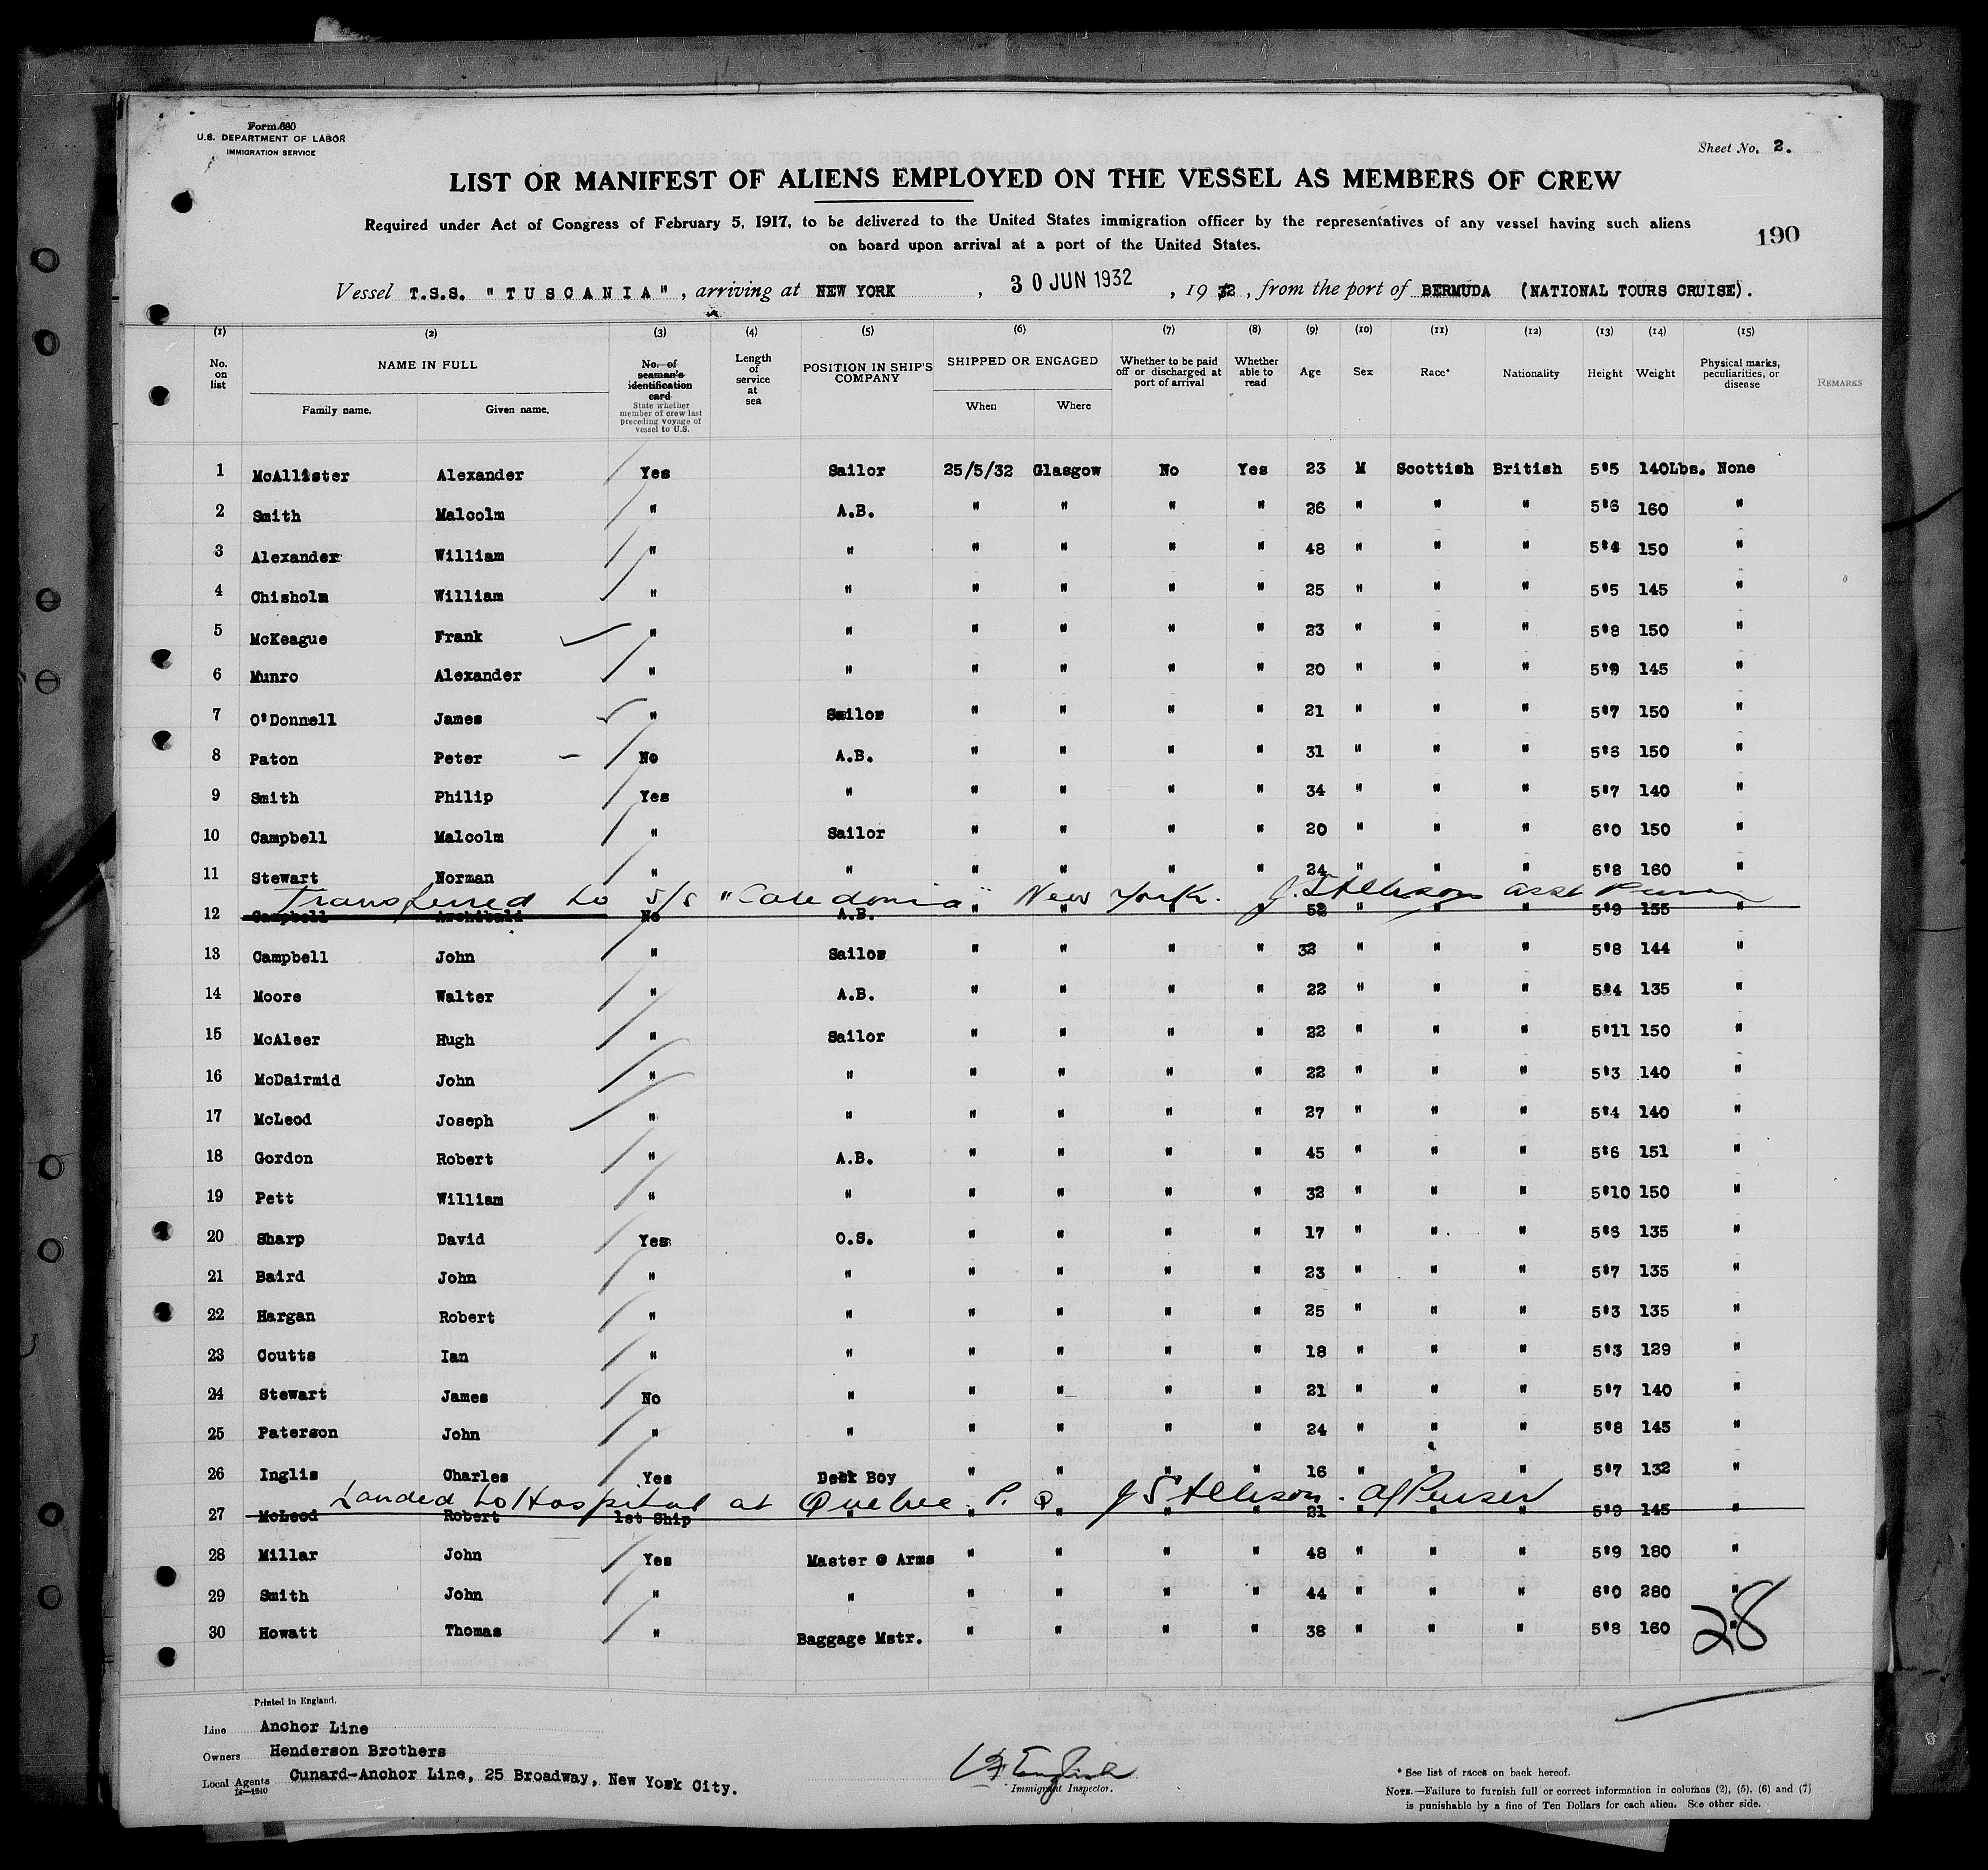 Form 680
U.S. DEPARTMENT OF LABOR
IMMIGRATION SERVICE
Sheet No. 2.
LIST OR MANIFEST OF ALIENS EMPLOYED ON THE VESSEL AS MEMBERS OF CREW
Required under Act of Congress of February 5, 1917, to be delivered to the United States immigration officer by the representatives of any vessel having such aliens
on board upon arrival at a port of the United States.
190
Vessel T.S.S. "TUSCANIA", arriving at NEW YORK, 30 JUN 1932, 1932, from the port of BERMUDA (NATIONAL TOURS CRUISE).
(1) (2) (3) (4) (5) (6) (7) (8) (9) (10) (11) (12) (13) (14) (15)
No. on list NAME IN FULL Family name. Given name. No. of seaman's identification card State whether member of crew last preceding voyage of vessel to U.S. Length of service at sea POSITION IN SHIP'S COMPANY SHIPPED OR ENGAGED When Where Whether to be paid off or discharged at port of arrival Whether able to read Age Sex Race* Nationality Height Weight Physical marks, peculiarities, or disease REMARKS
1 McAllister Alexander Yes Sailor 25/5/32 Glasgow No Yes 23 M Scottish British 5'5 140Lbs. None
2 Smith Malcolm " A.B. " " " " 26 " " " 5'6 160 "
3 Alexander William " " " " " " 48 " " " 5'4 150 "
4 Chisholm William " " " " " " 25 " " " 5'5 145 "
5 McKeague Frank " " " " " " 23 " " " 5'8 150 "
6 Munro Alexander " " " " " " 20 " " " 5'9 145 "
7 O'Donnell James " Sailor " " " " 21 " " " 5'7 150 "
8 Paton Peter – No A.B. " " " " 31 " " " 5'6 150 "
9 Smith Philip Yes " " " " " 34 " " " 5'7 140 "
10 Campbell Malcolm " Sailor " " " " 20 " " " 6'0 150 "
11 Stewart Norman " " " " " " 24 " " " 5'8 160 "
Transferred to S/S "Caledonia" New York. asst Purser
12 Campbell Archibald No A.B. " " " " 52 " " " 5'9 155 "
13 Campbell John " Sailor " " " " 32 " " " 5'8 144 "
14 Moore Walter " A.B. " " " " 22 " " " 5'4 135 "
15 McAleer Hugh " Sailor " " " " 22 " " " 5'11 150 "
16 McDairmid John " " " " " " 22 " " " 5'3 140 "
17 McLeod Joseph " " " " " " 27 " " " 5'4 140 "
18 Gordon Robert " A.B. " " " " 45 " " " 5'6 151 "
19 Pett William " " " " " " 32 " " " 5'10 150 "
20 Sharp David Yes O.S. " " " " 17 " " " 5'6 135 "
21 Baird John " " " " " " 23 " " " 5'7 135 "
22 Hargan Robert " " " " " " 25 " " " 5'3 135 "
23 Coutts Ian " " " " " " 18 " " " 5'3 129 "
24 Stewart James No " " " " " 21 " " " 5'7 140 "
25 Paterson John " " " " " " 24 " " " 5'8 145 "
26 Inglis Charles Yes Deck Boy " " " " 16 " " " 5'7 132 "
Landed to Hospital at Quebec P.Q. Purser
27 McLeod Robert 1st Ship " " " " " 21 " " " 5'9 145 "
28 Millar John Yes Master @ Arms " " " " 48 " " " 5'9 180 "
29 Smith John " " " " " " 44 " " " 6'0 280 "
30 Howatt Thomas " Baggage Mstr. " " " " 38 " " " 5'8 160 "
28
Printed in England.
Line Anchor Line
Owners Henderson Brothers
Local Agents Cunard-Anchor Line, 25 Broadway, New York City.
14—1240
English
Immigrant Inspector.
* See list of races on back hereof.
NOTE.—Failure to furnish full or correct information in columns (2), (5), (6) and (7)
is punishable by a fine of Ten Dollars for each alien. See other side.